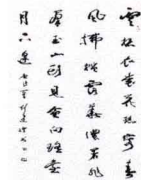 雲想衣裳花想容春
風拂檻露華濃若非
羣玉山頭見會向瑤臺
月下逢